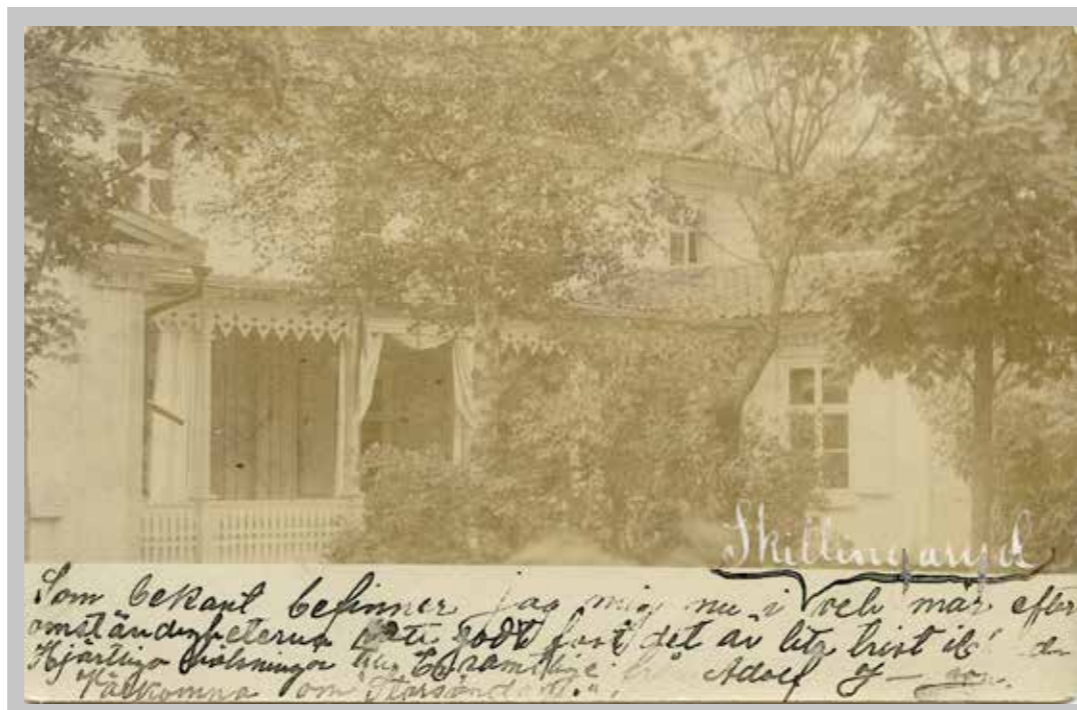 Skillingaryd
Som bekant befinner jag mig nu i och mår efter
omständigheterna godt fast det är litet trist
Hjärtliga hälsningar från Adolf J—son.
Välkomna om